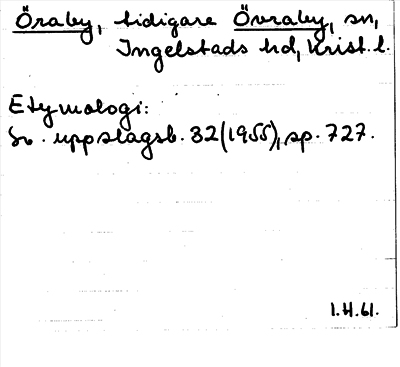 Öraby, tidigare Övraby, sn,
Ingelstads hd, Krist. l.
Etymologi:
Sv. uppslagsb. 32(1955), sp. 727.
1.H.61.